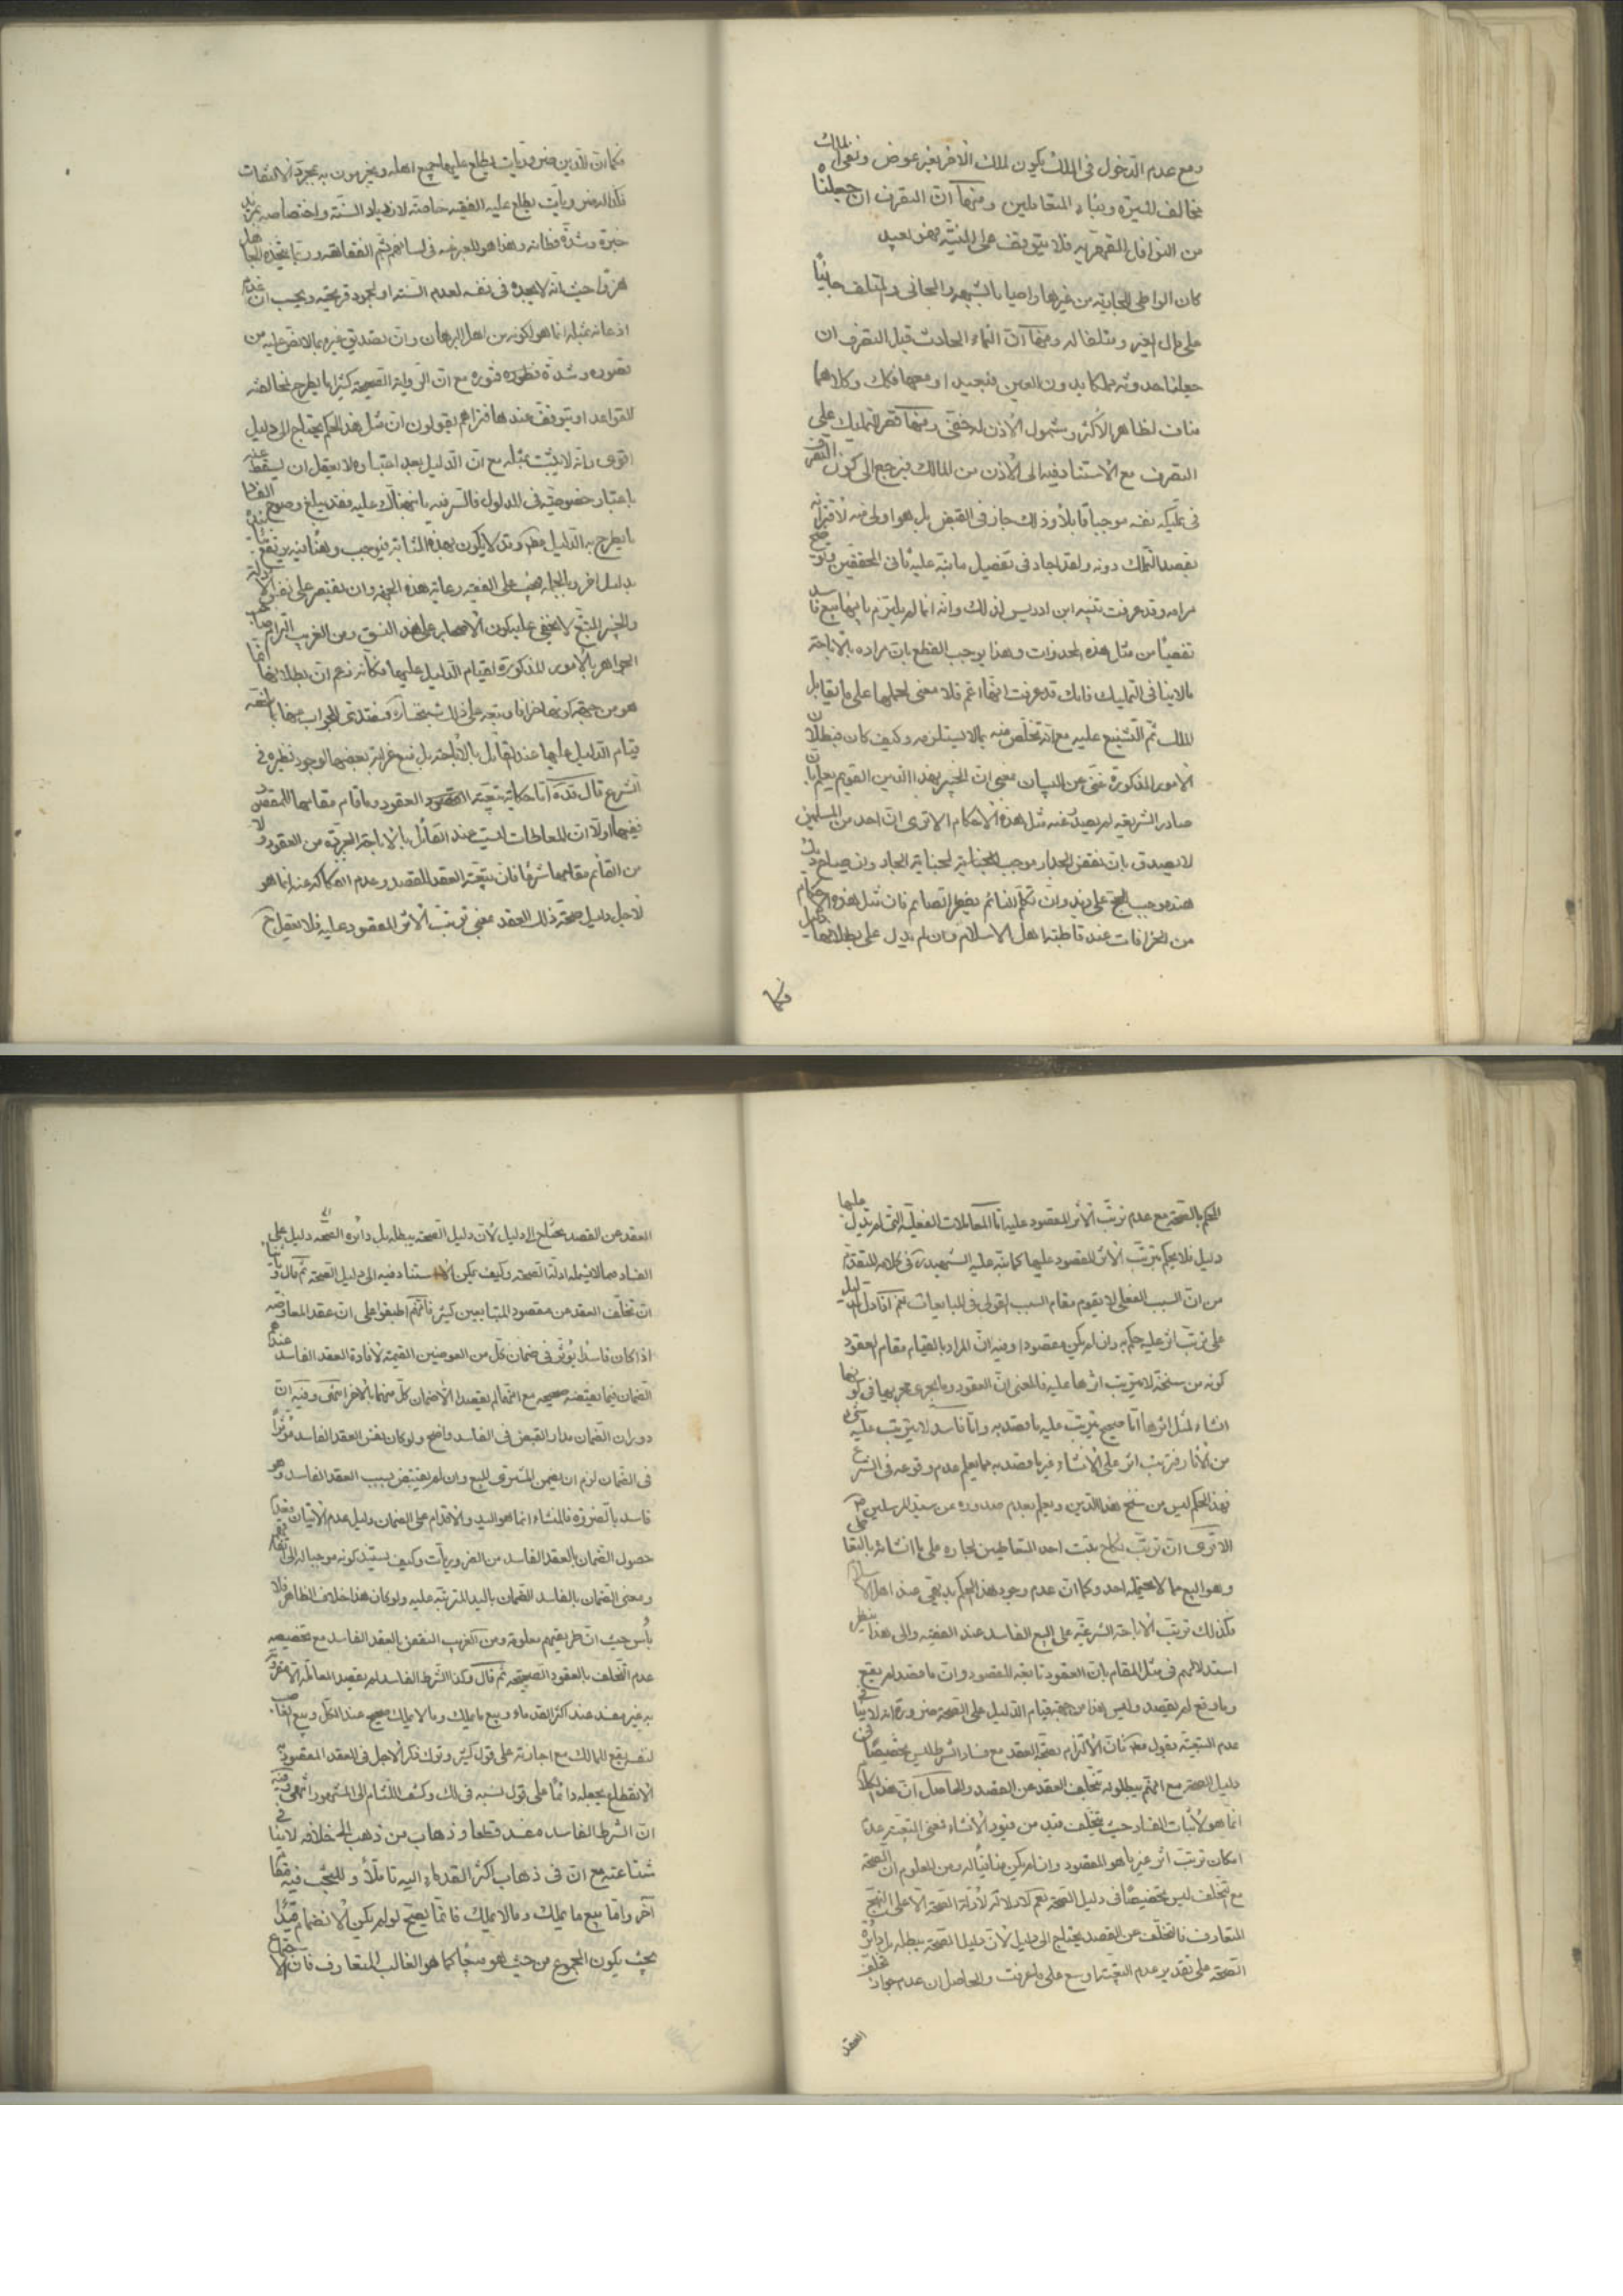 ومع عدم الدخول في الملك يكون لملك الاخر بغير عوض ونفى الملك
مخالف للسيرة وبناء المتعاملين ومنها ان التصرف ان جعلناه
من النواقل القهرية فلا يتوقف على النية فهو بعيد
كان الواطي للجارية من غيرها واطيا بالشبهه والجاني والمتلف جانيا
على مال الغير ومتلفا له ومنها ان النماء الحادث قبل التصرف ان
جعلنا حدوثه مملكا بدون العين فبعيد او معها فكك وكلاهما
مناف لظاهر الاكثر وشمول الاذن له خفي ومنها قصر التمليك على
التصرف مع الاستناد فيه الى الاذن من المالك فيرجع الى كون المتصرف
في تمليكه نفسه موجبا قابلا وذلك جار في القبض بل هو اولى منه لاقترانه
بقصد التملك دونه ولقد اجاد في تفصيل ما نبه عليه ثاني المحققين
مرامه وقد عرفت تنبه ابن ادريس لذلك وانه انما لم يلتزم بانها بيع فاسد
تفصيا من مثل هذه المحذورات وهذا يوجب القطع بان مراده بالاباحة
ما لا ينافي التمليك فانك قد عرفت انها اعم فلا معنى لحملها على ما يقابل
الملك ثم التشنيع عليه مع انه تخلص منه بما لا يستلزمه وكيف كان فبطلان
الامور المذكورة غني عن البيان بمعنى ان الخبير بهذا الدين القويم يعلم بان
صادر الشريعة لم يصدر عنه مثل هذه الاحكام الا ترى ان احد من المسلمين
لا يصدق بان نقض الجدار موجب للجنابة لجنابة الجار وان صياح ديك
هند موجب للحج على زيد وان تكلم النائم يفطر الصائم فان مثل هذه الاحكام
من الخرافات عند قاطبة اهل الاسلام وان لم يدل على بطلانها دليل
فكما
فكما ان للدين ضروريات يطلع عليها جميع اهله ويجزمون به بمجرد الالتفات
فكذا له ضروريات يطلع عليه الفقيه خاصة لازدياد السنة واختصاصه بمزيد
خبرة وشدة فطانة وهذا هو المعبر عنه في لسانهم بشم الفقاهة وربما يتخذه الجاهل
هزوا حيث انه لا يجده في نفسه لعدم السنة او لجمود قريحته ويحسب ان عدم
اذعانه بمثله انما هو لكونه من اهل البرهان وان تصديق غيره بما لا نص عليه من
قصوره وشدة فطوره فتوره مع ان الرواية الصحيحة كثيرا ما يطرح لمخالفته
للقواعد او يتوقف عندها فتراهم يقولون ان مثل هذا الحكم يحتاج الى دليل
اقوى وانه لا يثبت بمثله مع ان الدليل بعد اعتباره لا يعقل ان يسقط عنه
باعتبار خصوصية في المدلول فالسر فيه ما نبهناك عليه فقد يبلغ وضوح الفساد
ما يطرح به الدليل مط وقد لا يكون بهذه المثابة فيوجب وهنا فيه يرتفع
بدليل اخر وبالجملة فيجب على الفقيه رعاية هذه الجهة وان لا يقتصر على نفس الادلة
والخبير المتتبع لا يخفى عليه كون الاصحاب على هذا النسق ومن الغريب التزام صاحب
الجواهر بالامور المذكورة لقيام الدليل عليها فكانه زعم ان بطلانها انما
هو من جهة كونها خرافا ونبه على ذلك شيخنا قده فتصدى للجواب عنها بما لفقه
قيام الدليل عليها عند القائل بالاباحة بل منع غرابة بعضها لوجود نظيره في
الشرع قال قده اما حكاية تبعية العقود وما قام مقامها للقصود
ففيها اولا ان المعاطات ليست عند القائل بالاباحة المجردة من العقود ولا
من القائم مقامها شرعا فان تبعية العقد للقصد وعدم انفكاكه عنه انما هو
لاجل دليل صحة ذلك العقد بمعنى ترتب الاثر المقصود عليه فلا يعقل ح
الحكم بالصحة مع عدم ترتب الاثر المقصود عليه اما المعاملات الفعلية التي لم تدل عليها
دليل فلا يحكم بترتب الاثر المقصود عليها كما نبه عليه الشهيد ره في كلامه المتقدم
من ان السبب الفعلي لا يقوم مقام السبب القولي في المبايعات نعم اذا دل الدليل
على ترتب اثر عليه حكم به وان لم يكن مقصودا وفيه ان المراد بالقيام مقام العقود
كونه من سنخه لا يترتب اثرها عليه فالمعنى ان العقود وما يجري مجريها في كونها
انشاء لمثل اثرها اما صحيح يترتب عليه ما قصد به واما فاسد لا يترتب عليه شيء
من الاثار فترتب اثر على الانشاء غير ما قصد به مما يعلم عدم وقوعه في الشرع
فهذا الحكم ليس من سنخ هذا الدين ويعلم بعدم صدوره عن سيد المرسلين ص
الا ترى ان ترتيب نكاح بنت احد المتعاطيين لجاره على ما انشائه بالتعاطي
وهو البيع مما لا يحتمله احد وكما ان عدم وجود هذا الحكم بديهي عند اهل الاسلام
فكذلك ترتيب الاباحة الشرعية على البيع الفاسد عند الفقيه والى هذا ينظر
استدلالهم في مثل المقام بان العقود تابعة للقصود وان ما قصد لم يقع
وما وقع لم يقصد وليس هذا من جهة قيام الدليل على الصحة ضرورة انه لا ينافي
عدم التبعية بقول مط فان الالتزام بصحة العقد مع فساد الشرط ليس تخصيصا في
دليل الصحة مع انهم يبطلونه بتخلف العقد عن القصد والحاصل ان هذا الكلام
انما هو لاثبات الفساد حيث يتخلف قيد من قيود الانشاء فمعنى التبعية عدم
امكان ترتب اثر غير ما هو المقصود وان لم يكن منافيا له ومن المعلوم ان الصحة
مع التخلف ليس تخصيصا في دليل الصحة نعم لا دلالة لادلة الصحة الا على النهج
المتعارف فالتخلف عن القصد يحتاج الى دليل لا ان دليل الصحة يبطله بل دائرة
الصحة على تقدير عدم التبعية اوسع على ما عرفت والحاصل ان عدم جواز تخلف
العقد
العقد عن القصد يحتاج الى دليل لا ان دليل الصحة يبطله بل دائره الصحة دليل على
الفساد مما لا يشمله ادلة الصحة وكيف يمكن الاستناد فيه الى دليل الصحة ثم قال وثانيا
ان تخلف العقد عن مقصود المتبايعين كثير فانهم اطبقوا على ان عقد المعاوضه
اذا كان فاسدا يؤثر في ضمان كل من العوضين القيمة لافادة العقد الفاسد عندهم
الضمان فيما يقتضيه صحيحه مع انهما لم يقصدا الا ضمان كل منهما بالاخر انتهى وفيه ان
دوران الضمان مدار القبض في الفاسد واضح ولو كان نفس العقد الفاسد مؤثرا
في الضمان لزم ان يضمن المشتري المبيع وان لم يقبض بسبب العقد الفاسد وهو
فاسد بالضرورة فالمنشاء انما هو اليد والاقدام على الضمان دليل عدم الائتمان فعدم
حصول الضمان بالعقد الفاسد من الضروريات وكيف يستند كونه موجبا له الى الفقهاء
ومعنى الضمان بالفاسد الضمان باليد المترتبة عليه ولو كان هذا خلاف الظاهر فلا
باس حيث ان طريقتهم معلومة ومن الغريب النقض بالعقد الفاسد مع تخصيصه
عدم التخلف بالعقود الصحيحه ثم قال وكذا الشرط الفاسد لم يقصد المعاملة الا مقرونة
به غير مفسد عند اكثر القدماء وبيع ما يملك وما لا يملك صحيح عند الكل وبيع الغاصب
لنفسه يقع للمالك مع اجازته على قول كثير وترك ذكر الاجل في العقد المقصود به
الانقطاع يجعله دائما على قول نسبه في لك وكشف اللثام الى المشهور انتهى وفيه
ان الشرط الفاسد مفسد قطعا وذهاب من ذهب الى خلافه لا ينافي
شناعته مع ان في ذهاب اكثر القدماء اليه تاملا وللبحث فيه مقام
آخر واما بيع ما يملك وما لا يملك فانما يصح لو لم يكن الانضمام قيدا
بحيث يكون المجموع من حيث هو مبيعا كما هو الغالب المتعارف فان الاجتماع